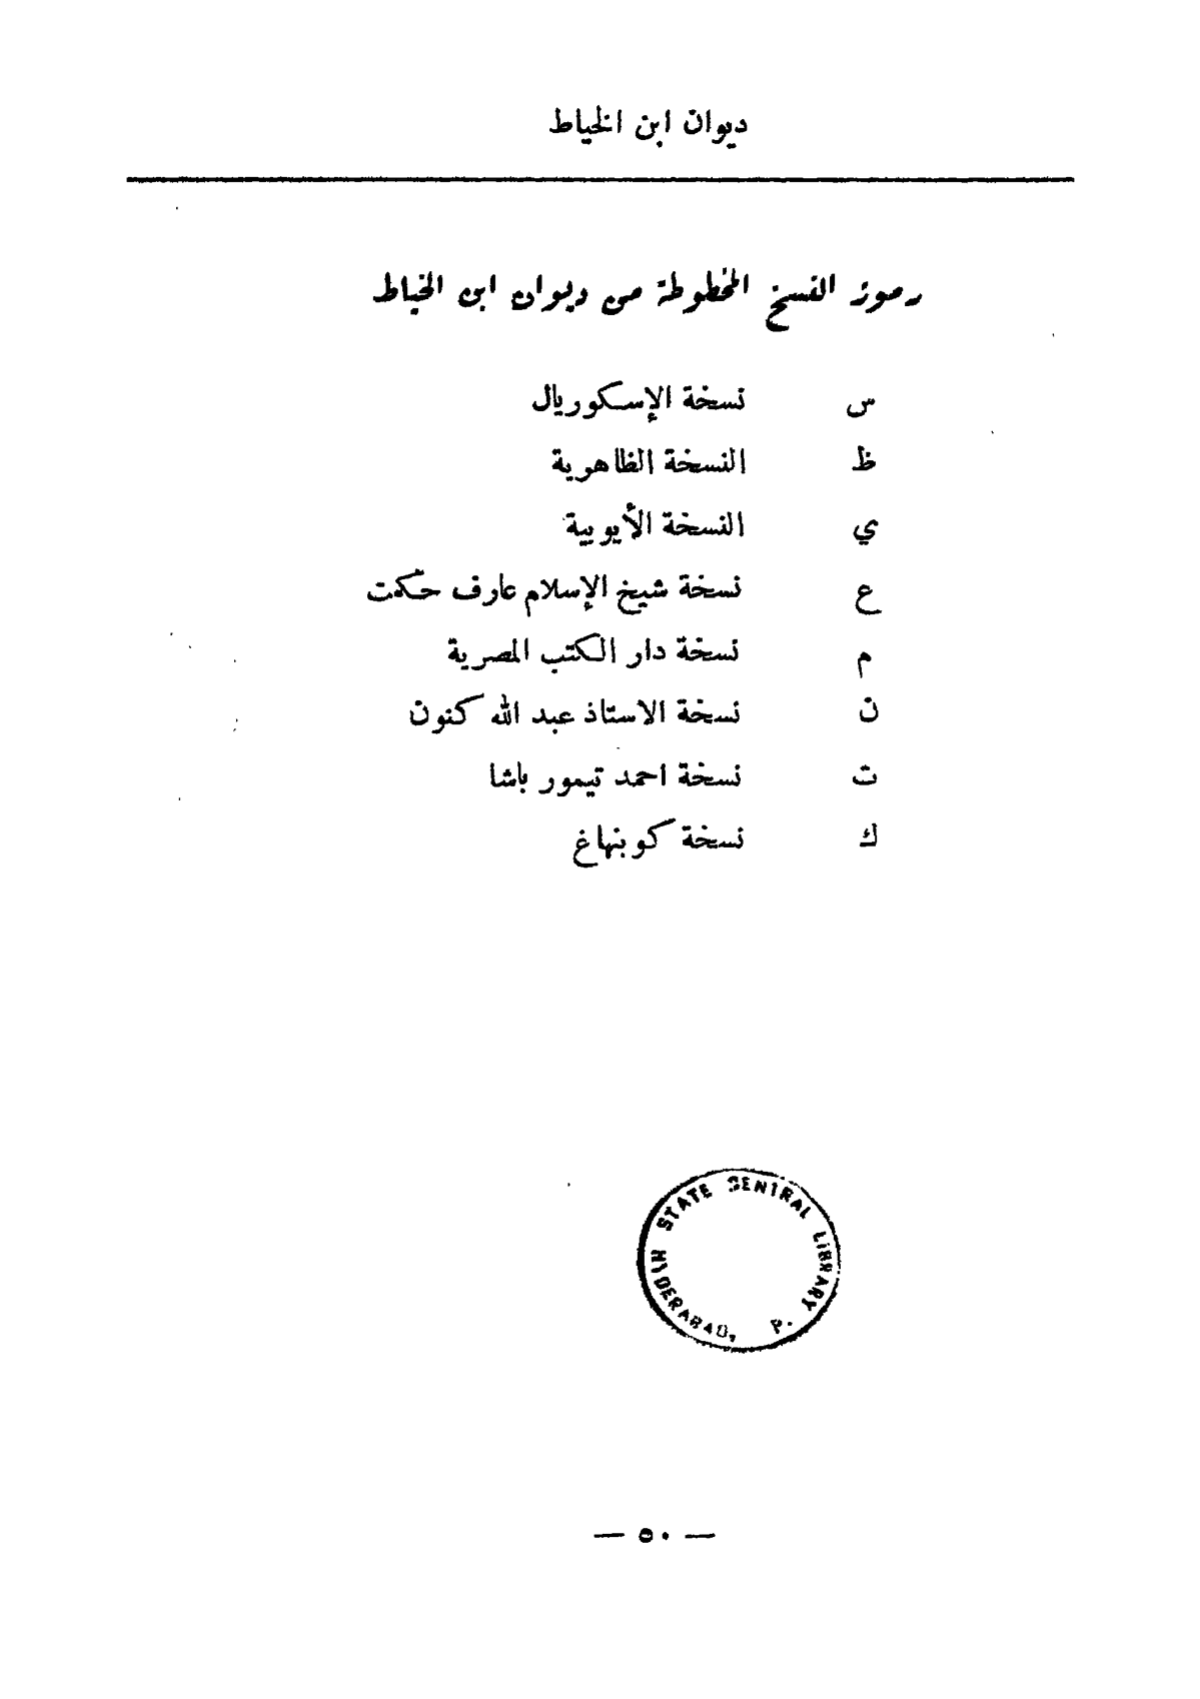 ديوان ابن الخياط
رموز النسخ المخطوطة من ديوان ابن الخياط
س نسخة الإسكوريال
ظ النسخة الظاهرية
ي النسخة الأيوبية
ع نسخة شيخ الإسلام عارف حكمت
م نسخة دار الكتب المصرية
ن نسخة الاستاذ عبد الله كنون
ت نسخة احمد تيمور باشا
ك نسخة كوبنهاغ
STATE CENTRAL LIBRARY
HYDERABAD, P.
— ٥٠ —